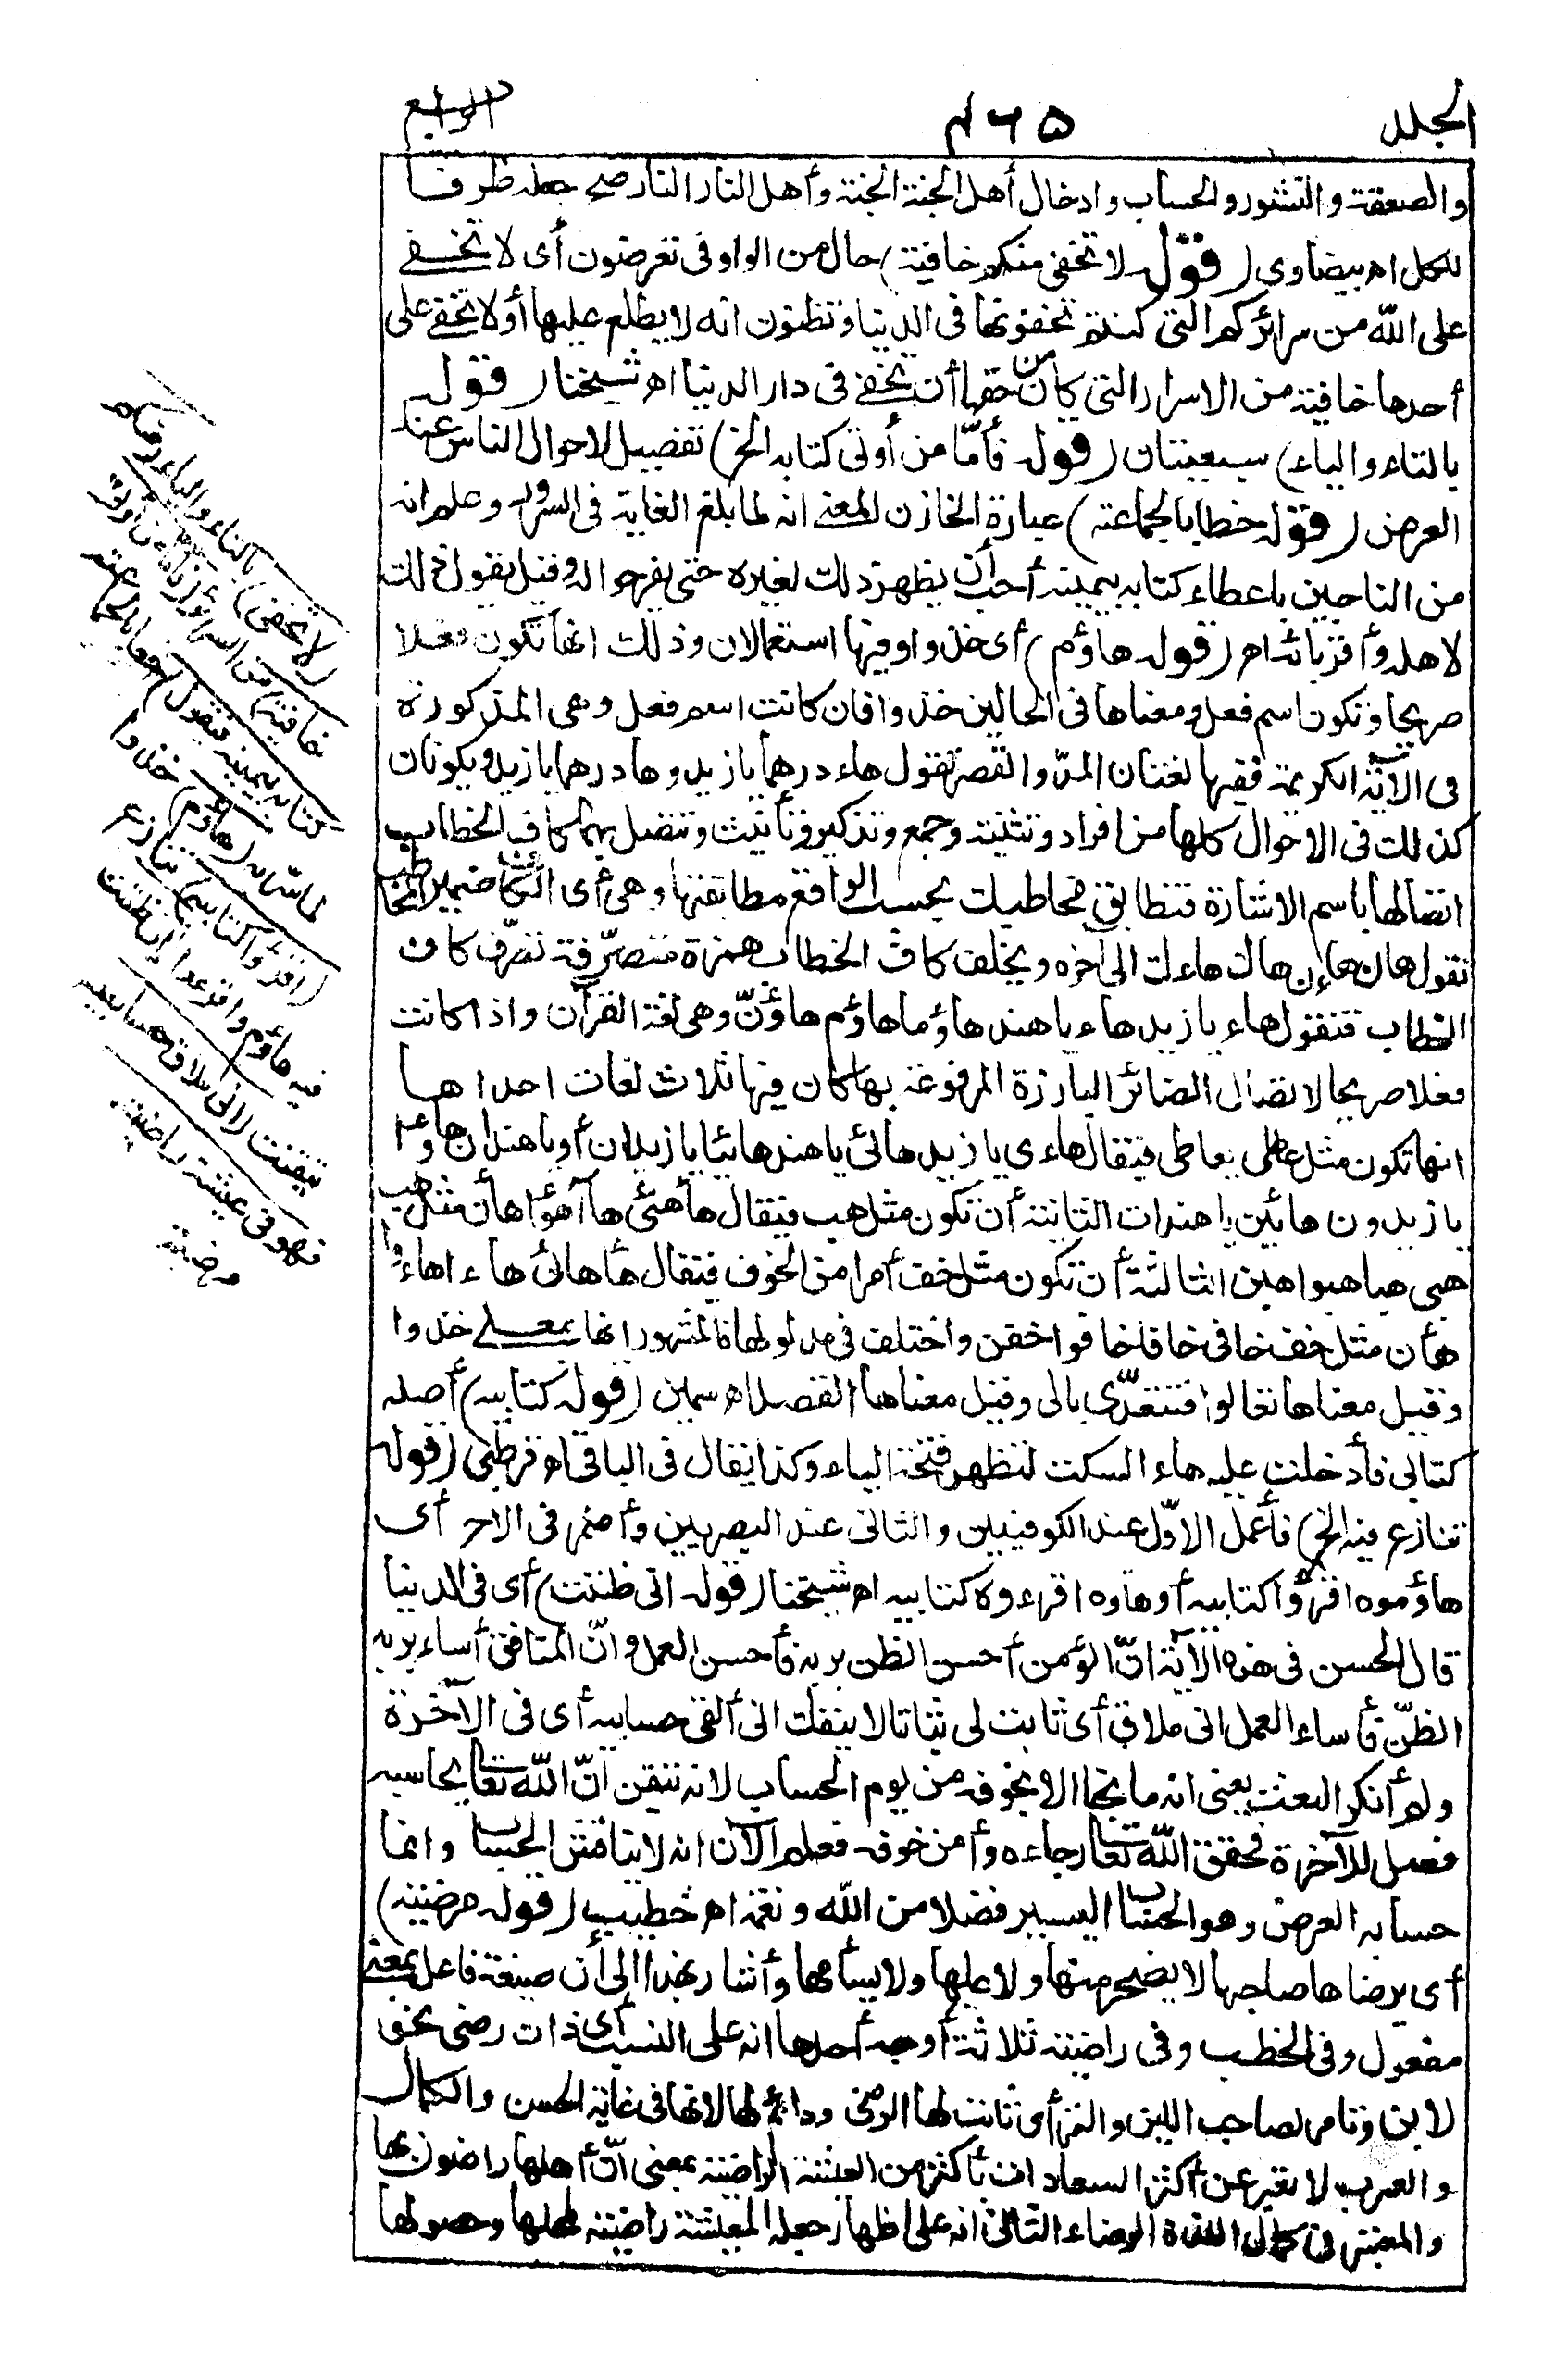 الجلد ٤٦٥ الرابع
والصعقة والنشور والحساب وادخال أهل الجنة الجنة وأهل النار النار صح جعله ظرفا
للكل اه بيضاوى (قوله لا تخفى منكم خافية) حال من الواو فى تعرضون أى لا تخفى
على الله من سرائركم التى كنتم تخفونها فى الدنيا وتظنون انه لا يطلع عليها أو لا تخفى على
أحدها خافية من الاسرار التى كان من حقها أن تخفى فى دار الدنيا اه شيخنا (قوله
بالتاء والياء) سبعيتان (قوله فأمّا من أوتى كتابه الخ) تفصيل لاحوال الناس عند
العرض (قوله خطابا لجماعته) عبارة الخازن المعنى انه لما بلغ الغاية فى السرور وعلم انه
من الناجين باعطاء كتابه بيمينه أحب أن يظهر ذلك لغيره حتى يفرحوا له وقيل يقول ذلك
لاهله وأقربائه اه (قوله هاؤم) أى خذوا وفيها استعمالان وذلك انها تكون فعلا
صريحا وتكون اسم فعل ومعناها فى الحالين خذوا فان كانت اسم فعل وهى المذكورة
فى الآية الكريمة ففيها لغتان المدّ والقصر تقول هاء درهما يا زيد وها درهما يا زيد ويكونان
كذلك فى الاحوال كلها من افراد وتثنية وجمع وتذكير وتأنيث وتتصل بهما كاف الخطاب
اتصالها باسم الاشارة فتطابق مخاطبك بحسب الواقع مطابقتها وهى أى الكاف ضمير المخاطب
تقول هاك هاءك الى آخره ويخلف كاف الخطاب همزة متصرّفة تصرّف كاف
الخطاب فتقول هاء يا زيد هاء يا هند هاؤما هاؤم هاؤنّ وهى لغة القرآن واذا كانت
فعلا صريحا لاتصال الضمائر البارزة المرفوعة بها كان فيها ثلاث لغات احداها
انها تكون مثل عاطى يعاطى فيقال هاء يا زيد هائى يا هند هائيا يا زيدان أو يا هندان هاؤا
يا زيدون هائين يا هندات الثانية أن تكون مثل هب فيقال هأ هئى هآ هؤا هأن مثل هب
هبى هبا هبوا هبن الثالثة أن تكون مثل خف أمرا من الخوف فيقال هأ هائى هاءا هاؤا
هأن مثل خف خافى خافا خافوا خفن واختلف فى مدلولها فالمشهور انها بمعنى خذوا
وقيل معناها تعالوا فتتعدّى بالى وقيل معناها القصد اه سمين (قوله كتابيه) أصله
كتابى فأدخلت عليه هاء السكت لتظهر فتحة الياء وكذا يقال فى الباقى اه قرطبى (قوله
تنازع فيه الخ) فأعمل الاوّل عند الكوفيين والثانى عند البصريين وأضمر فى الآخر أى
هاؤموه اقرؤا كتابيه أو هاؤم اقرءوه كتابيه اه شيخنا (قوله انى ظننت) أى فى الدنيا
قال الحسن فى هذه الآية انّ المؤمن أحسن الظن بربه فأحسن العمل وانّ المنافق أساء بربه
الظنّ فأساء العمل انى ملاق أى ثابت لى ثباتا لا ينفك انى ألقى حسابيه أى فى الآخرة
ولم أنكر البعث يعنى انه ما نجا الا بخوفه من يوم الحساب لانه تيقن أنّ الله تعالى يحاسبه
فعمل للآخرة فحقق الله تعالى رجاءه وأمن خوفه فعلم الآن انه لا يناقش الحساب وانما
حسابه العرض وهو الحساب اليسير فضلا من الله ونعمة اه خطيب (قوله مرضية)
أى يرضاها صاحبها لا يضجر منها ولا يملها ولا يسأمها وأشار بهذا الى أن صيغة فاعل بمعنى
مفعول وفى الخطيب وفى راضية ثلاثة أوجه أحدها انه على النسب أى ذات رضى نحو
لابن وتامر لصاحب اللبن والتمر أى ثابت لها الرضى ودائم لها لانها فى غاية الحسن والكمال
والعرب لا تعبر عن أكثر السعادات بأكثر من العيشة الراضية بمعنى أنّ أهلها راضون بها
والمعتبر فى كمال اللذة الرضاء الثانى انه على اظهار جعله المعيشة راضية لمحلها وحصولها
(لا تخفى) بالتاء والياء (منكم
خافية) من السرائر (فأما من أوتى
كتابه بيمينه فيقول) خطابا لجماعته
لما سر به (هاؤم) خذوا
(اقرؤا كتابيه) تنازع
فيه هاؤم واقرءوا (انى ظننت)
تيقنت (انى ملاق حسابيه
فهو فى عيشة راضية)
مرضية